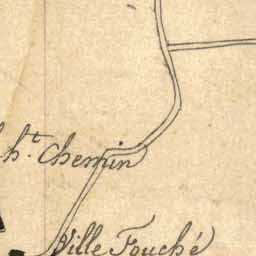 h.t Chemin
Ville Fouché